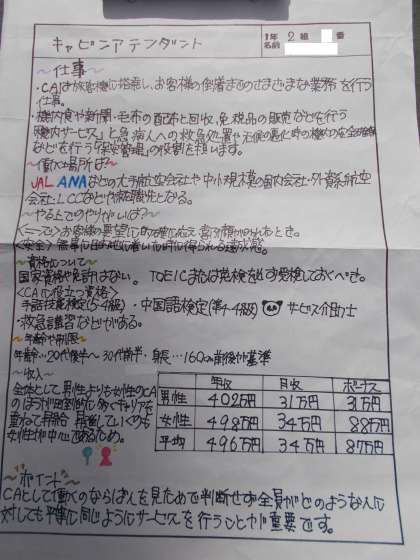 キャビンアテンダント
1年 2組 番
名前
〜仕事〜
・CAは旅客機に搭乗し、お客様の到着までのさまざまな業務を行う
仕事。
・機内食や新聞・毛布の配布と回収、免税品の販売などを行う
「機内サービス」と急病人への救急処置や天候の悪化時の機内の安全確保
などを行う「保安管理」の役割を担います。
〜働く場所は?〜
JAL ANAなどの大手航空会社や中小規模の国内会社・外資系航空
会社・LCCなどが就職先となる。
〜やるとでのやりがいは?〜
お客様の要望に的確に応え喜ん頂かれたとき。
<安全> 無事に目的地に着いた時に得られる達成感。
〜資格について〜
国家資格や免許はない。 TOEICまたは英検を必ず受検しておくべき。
<CAに役立つ資格>
手話技能検定(5-4級)・中国語検定(準4-4級) サービス介助士
・救急講習などがある。
〜年齢や制限〜
年齢…20代後半〜30代前半・身長…160cm前後が基準
〜収入〜
全体として男性よりも女性のCA
のほうが圧倒的に多くキャリアを
重ねて昇給・昇進していくのも
女性が中心であるため。
年収 月収 ボーナス
男性 402万円 31万円 31万円
女性 498万円 34万円 88万円
平均 496万円 34万円 87万円
〜ポイント〜
CAとして働くのならば人を見ためで判断せず全員がどのような人に
対しても平等に同じようにサービスを行うことが重要です。